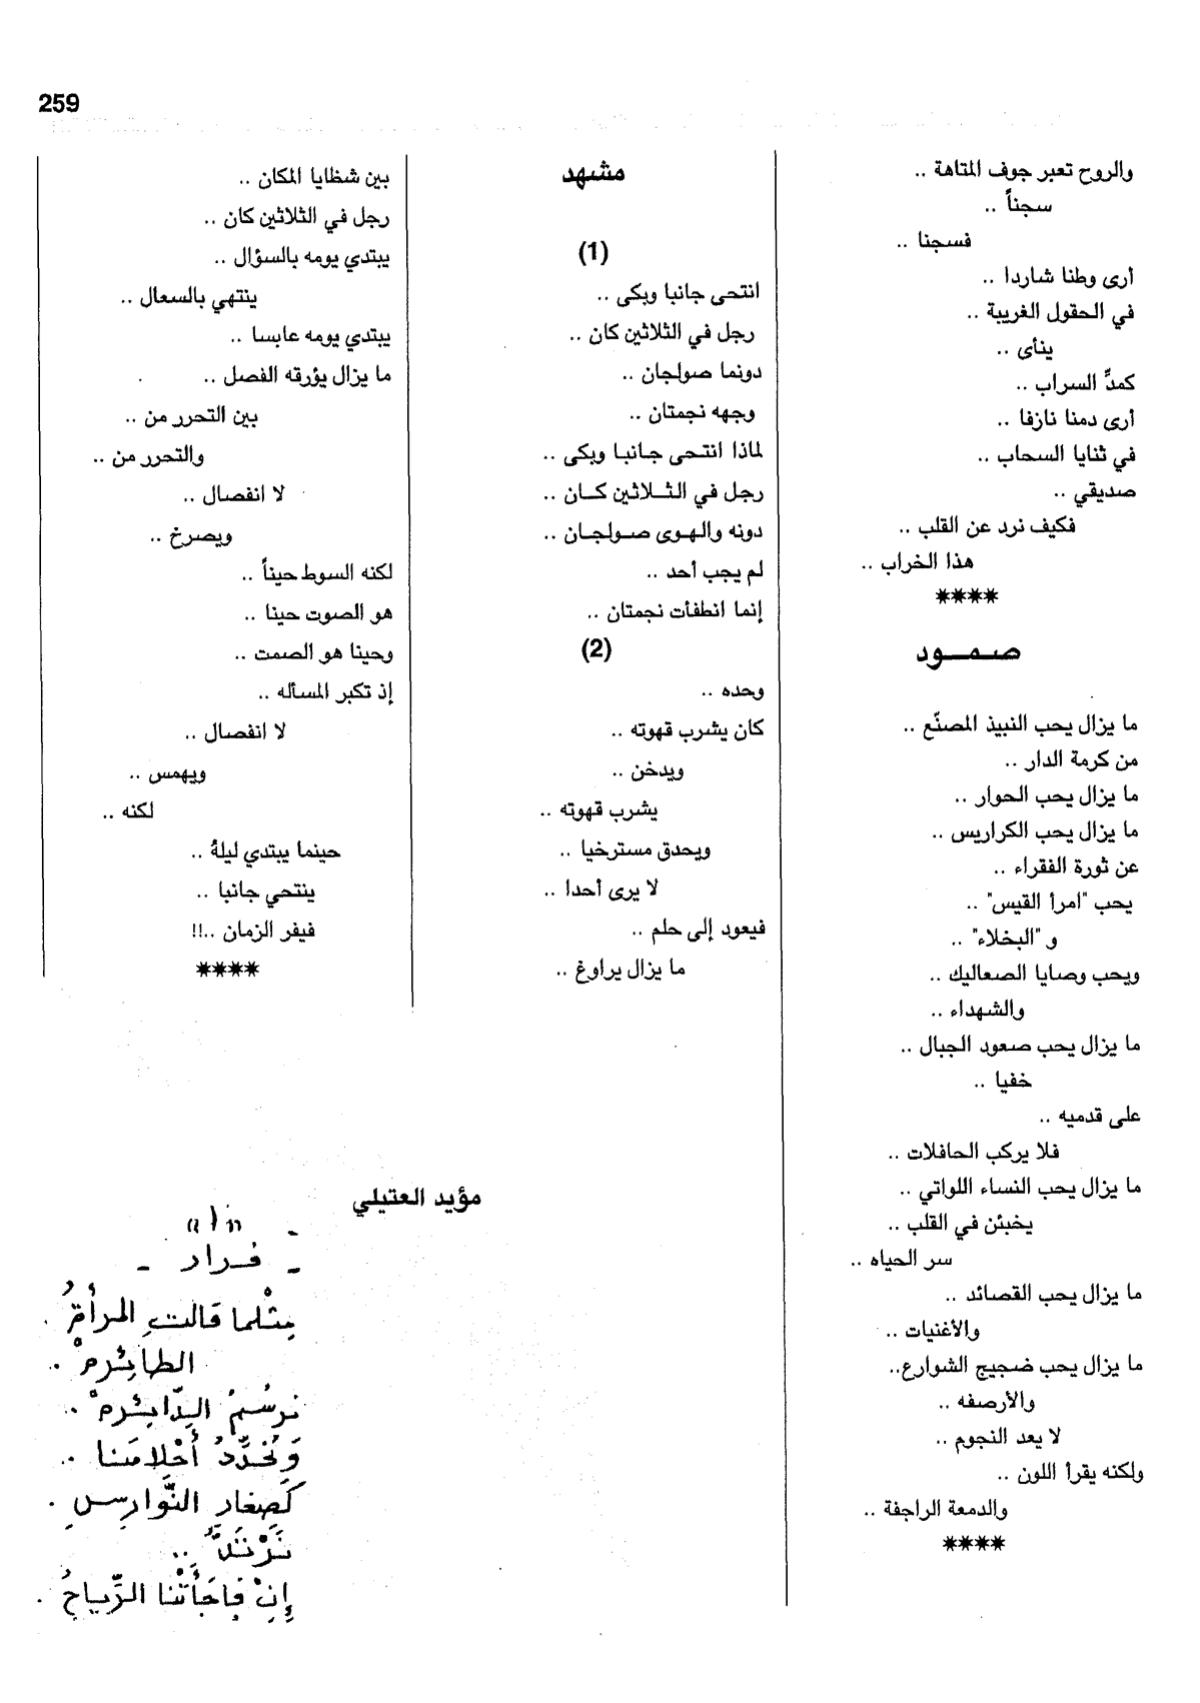 259
والروح تعبر جوف المتاهة ..
سجناً ..
فسجنا ..
أرى وطنا شاردا ..
في الحقول الغريبة ..
ينأى ..
كمدِّ السراب ..
أرى دمنا نازفا ..
في ثنايا السحاب ..
صديقي ..
فكيف نرد عن القلب ..
هذا الخراب ..
****
صمود
ما يزال يحب النبيذ المصنّع ..
من كرمة الدار ..
ما يزال يحب الحوار ..
ما يزال يحب الكراريس ..
عن ثورة الفقراء ..
يحب "امرأ القيس" ..
و "البخلاء" ..
ويحب وصايا الصعاليك ..
والشهداء ..
ما يزال يحب صعود الجبال ..
خفيا ..
على قدميه ..
فلا يركب الحافلات ..
ما يزال يحب النساء اللواتي ..
يخبئن في القلب ..
سر الحياه ..
ما يزال يحب القصائد ..
والأغنيات ..
ما يزال يحب ضجيج الشوارع..
والأرصفه ..
لا يعد النجوم ..
ولكنه يقرأ اللون ..
والدمعة الراجفة ..
****
مشهد
(1)
انتحى جانبا وبكى ..
رجل في الثلاثين كان ..
دونما صولجان ..
وجهه نجمتان ..
لماذا انتحى جانبا وبكى ..
رجل في الثلاثين كان ..
دونه والهوى صولجان ..
لم يجب أحد ..
إنما انطفأت نجمتان ..
(2)
وحده ..
كان يشرب قهوته ..
ويدخن ..
يشرب قهوته ..
ويحدق مسترخيا ..
لا يرى أحدا ..
فيعود إلى حلم ..
ما يزال يراوغ ..
بين شظايا المكان ..
رجل في الثلاثين كان ..
يبتدي يومه بالسؤال ..
ينتهي بالسعال ..
يبتدي يومه عابسا ..
ما يزال يؤرقه الفصل ..
بين التحرر من ..
والتحرر من ..
لا انفصال ..
ويصرخ ..
لكنه السوط حيناً ..
هو الصوت حينا ..
وحينا هو الصمت ..
إذ تكبر المسأله ..
لا انفصال ..
ويهمس ..
لكنه ..
حينما يبتدي ليلهُ ..
ينتحي جانبا ..
فيفر الزمان ..!!
****
مؤيد العتيلي
"١"
- فرار -
مِثْلما قالتِ المرأةُ .
الطائِره .
نرسُمُ الدّائِره ..
وَنُحَدِّدُ أَحْلامَنا ..
كَصِغارِ النَّوارِسِ .
نَرْتَدُّ ..
إنْ فاجَأَتْنا الرِّياحُ .